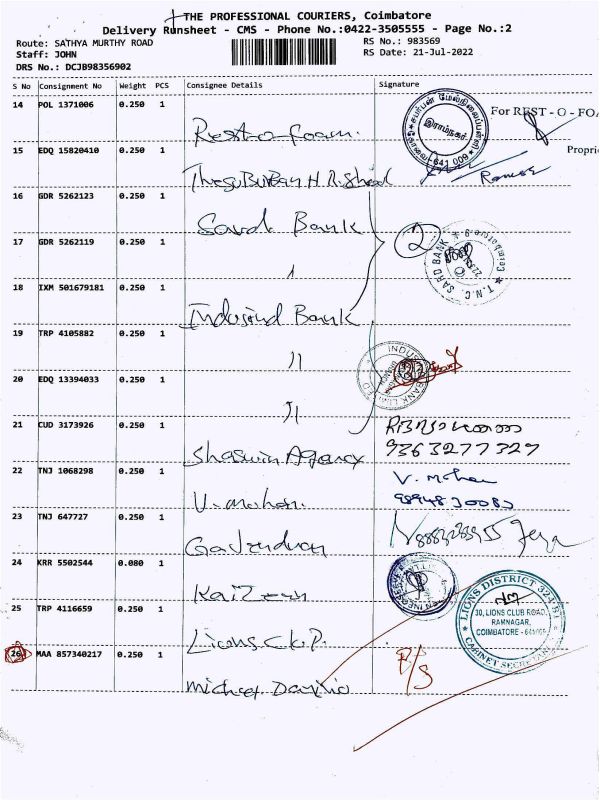 THE PROFESSIONAL COURIERS, Coimbatore
Delivery Runsheet - CMS - Phone No.:0422-3505555 - Page No.:2
Route: SATHYA MURTHY ROAD
RS No.: 983569
Staff: JOHN
RS Date: 21-Jul-2022
DRS No.: DCJB98356902
S No Consignment No Weight PCS Consignee Details Signature
14 POL 1371006 0.250 1 Rest-o-foam
For REST-O-FOA
இராம்நகர்
641 009
Propri
15 EDQ 15820410 0.250 1
16 GDR 5262123 0.250 1 Sard Bank
2
T.N.C. SARD BANK
17 GDR 5262119 0.250 1 "
18 IXM 501679181 0.250 1 Indusind Bank
19 TRP 4105882 0.250 1 "
20 EDQ 13394033 0.250 1 "
21 CUD 3173926 0.250 1 Shaswin Agency
9363277327
22 TNJ 1068298 0.250 1 V. mohan V. Mohan
23 TNJ 647727 0.250 1
24 KRR 5502544 0.080 1 Kaizen
25 TRP 4116659 0.250 1 Lions C.K.P.
LIONS DISTRICT 324 B1
30, LIONS CLUB ROAD,
RAMNAGAR,
COIMBATORE - 641 009
CABINET SECRETARY
26 MAA 857340217 0.250 1
R/S